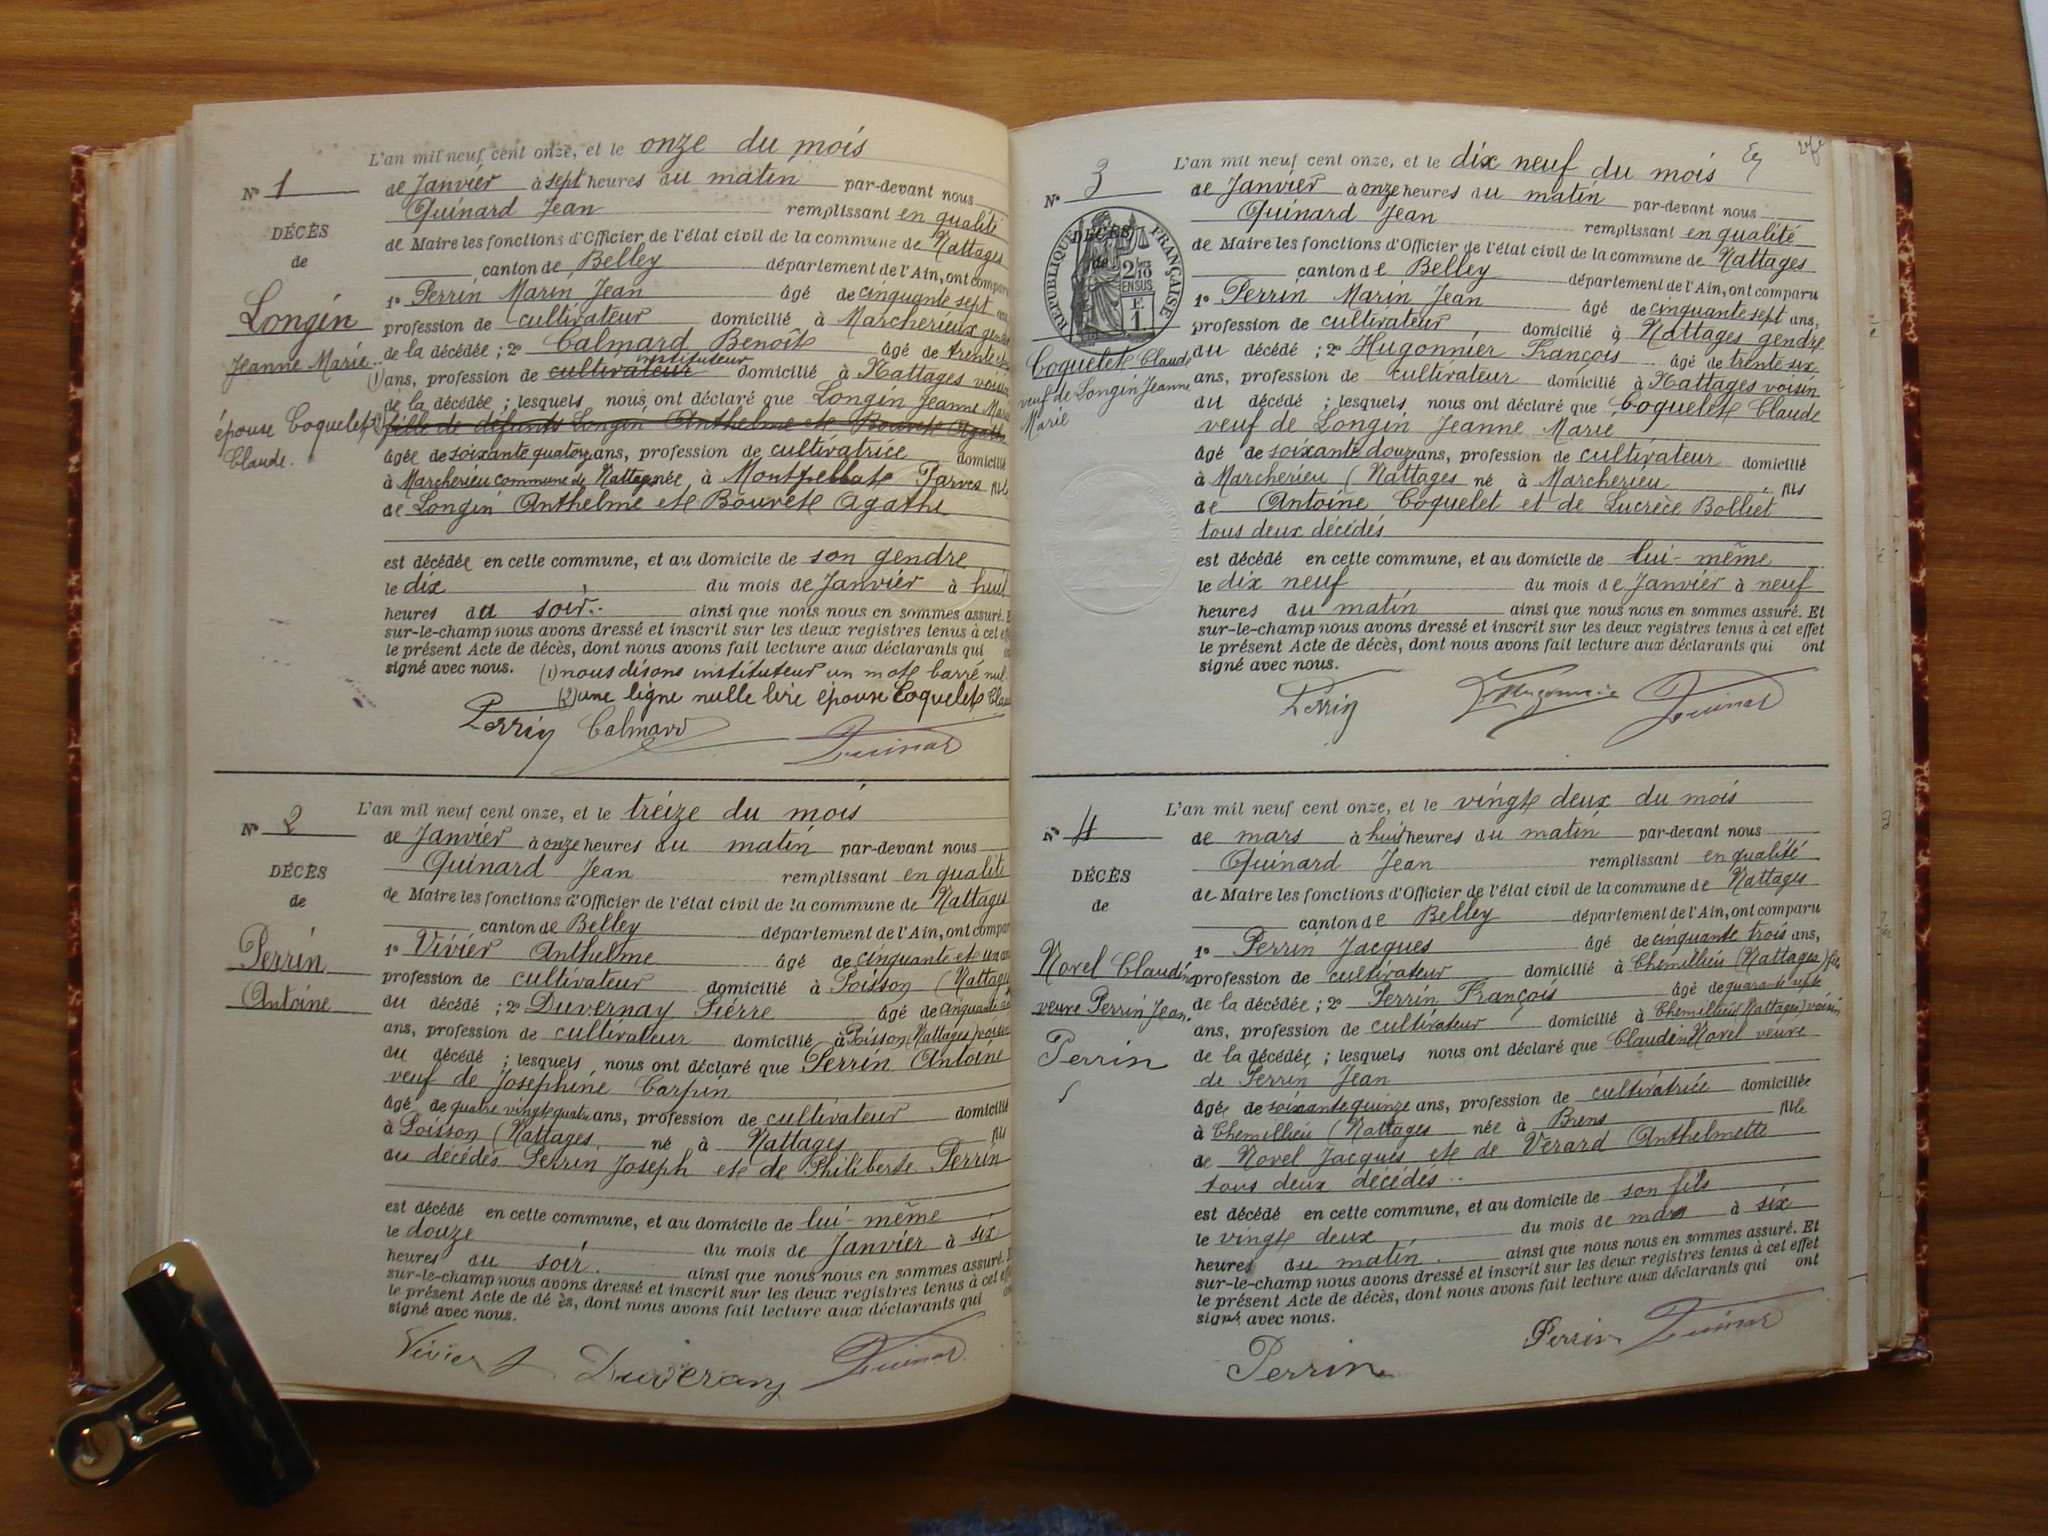 N° 1
DÉCÈS
de
Longin
Jeanne Marie
épouse Coquelet
Claude.
L'an mil neuf cent onze, et le onze du mois
de Janvier à sept heures du matin par-devant nous
Quinard Jean remplissant en qualité
de Maire les fonctions d'Officier de l'état civil de la commune de Nattages
canton de Belley département de l'Ain, ont comparu
1° Perrin Marin Jean âgé de cinquante sept ans
profession de cultivateur domicilié à Marcherieux gendre
de la décédée ; 2° Calmard Benoît âgé de trente
instituteur
(1) ans, profession de cultivateur domicilié à Nattages voisin
de la décédée ; lesquels nous ont déclaré que Longin Jeanne Marie
(2) fille de défunts Longin Anthelme et Bouvet Agathe
âgée de soixante quatorze ans, profession de cultivatrice domicilié
à Marcherieu commune de Nattages née à Montpellat Tarves fille
de Longin Anthelme et Bouvet Agathe
est décédée en cette commune, et au domicile de son gendre
le dix du mois de Janvier à huit
heures du soir.. ainsi que nous nous en sommes assuré. E
sur-le-champ nous avons dressé et inscrit sur les deux registres tenus à cet eff
le présent Acte de décès, dont nous avons fait lecture aux déclarants qui
signé avec nous. (1) nous disons instituteur un mot barré nul.
(2) une ligne nulle lire épouse Coquelet Clau
Perrin Calmard Quinard
N° 2
DÉCÈS
de
Perrin
Antoine
L'an mil neuf cent onze, et le treize du mois
de Janvier à onze heures du matin par-devant nous
Quinard Jean remplissant en qualité
de Maire les fonctions d'Officier de l'état civil de la commune de Nattages
canton de Belley département de l'Ain, ont compar
1° Vivier Anthelme âgé de cinquante et un ans
profession de cultivateur domicilié à Poisson (Nattages
du décédé ; 2° Duvernay Pierre âgé de cinquante
ans, profession de cultivateur domicilié à Poisson (Nattages) voisin
du décédé ; lesquels nous ont déclaré que Perrin Antoine
veuf de Joséphine Carpin
âgé de quatre vingt quatre ans, profession de cultivateur domicilié
à Poisson (Nattages né à Nattages fils
des décédés Perrin Joseph et de Philiberte Perrin
est décédé en cette commune, et au domicile de lui-même
le douze du mois de Janvier à six
heures du soir. ainsi que nous nous en sommes assuré. E
sur-le-champ nous avons dressé et inscrit sur les deux registres tenus à cet eff
le présent Acte de dé ès, dont nous avons fait lecture aux déclarants qui
signé avec nous.
Vivier Duvernay Quinard
N° 3
DÉCÈS
de
RÉPUBLIQUE FRANÇAISE
2/10 EN SUS
Coquelet Claude
veuf de Longin Jeanne
Marie
L'an mil neuf cent onze, et le dix neuf du mois
de Janvier à onze heures du matin par-devant nous
Quinard Jean remplissant en qualité
de Maire les fonctions d'Officier de l'état civil de la commune de Nattages
canton de Belley département de l'Ain, ont comparu
1° Perrin Marin Jean âgé de cinquante sept ans,
profession de cultivateur domicilié à Nattages gendre
du décédé ; 2° Hugonnier François âgé de trente six
ans, profession de cultivateur domicilié à Nattages voisin
du décédé ; lesquels nous ont déclaré que Coquelet Claude
veuf de Longin Jeanne Marie
âgé de soixante douze ans, profession de cultivateur domicilié
à Marcherieu (Nattages né à Marcherieu fils
de Antoine Coquelet et de Lucrèce Bolliet
tous deux décédés
est décédé en cette commune, et au domicile de lui-même
le dix neuf du mois de Janvier à neuf
heures du matin ainsi que nous nous en sommes assuré. Et
sur-le-champ nous avons dressé et inscrit sur les deux registres tenus à cet effet
le présent Acte de décès, dont nous avons fait lecture aux déclarants qui ont
signé avec nous.
Perrin Hugonnier Quinard
N° 4
DÉCÈS
de
Novel Claudine
veuve Perrin Jean.
Perrin
L'an mil neuf cent onze, et le vingt deux du mois
de mars à huit heures du matin par-devant nous
Quinard Jean remplissant en qualité
de Maire les fonctions d'Officier de l'état civil de la commune de Nattages
canton de Belley département de l'Ain, ont comparu
1° Perrin Jacques âgé de cinquante trois ans,
profession de cultivateur domicilié à Chemillieu (Nattages) fils
de la décédée ; 2° Perrin François âgé de quarante sept
ans, profession de cultivateur domicilié à Chemillieu (Nattages) voisin
de la décédée ; lesquels nous ont déclaré que Claudine Novel veuve
de Perrin Jean
âgée de soixante quinze ans, profession de cultivatrice domiciliée
à Chemillieu (Nattages née à Brens fille
de Novel Jacques et de Verard Anthelmette
tous deux décédés..
est décédé en cette commune, et au domicile de son fils
le vingt deux du mois de mars à six
heures du matin. ainsi que nous nous en sommes assuré. Et
sur-le-champ nous avons dressé et inscrit sur les deux registres tenus à cet effet
le présent Acte de décès, dont nous avons fait lecture aux déclarants qui ont
signé avec nous.
Perrin Perrin Quinard